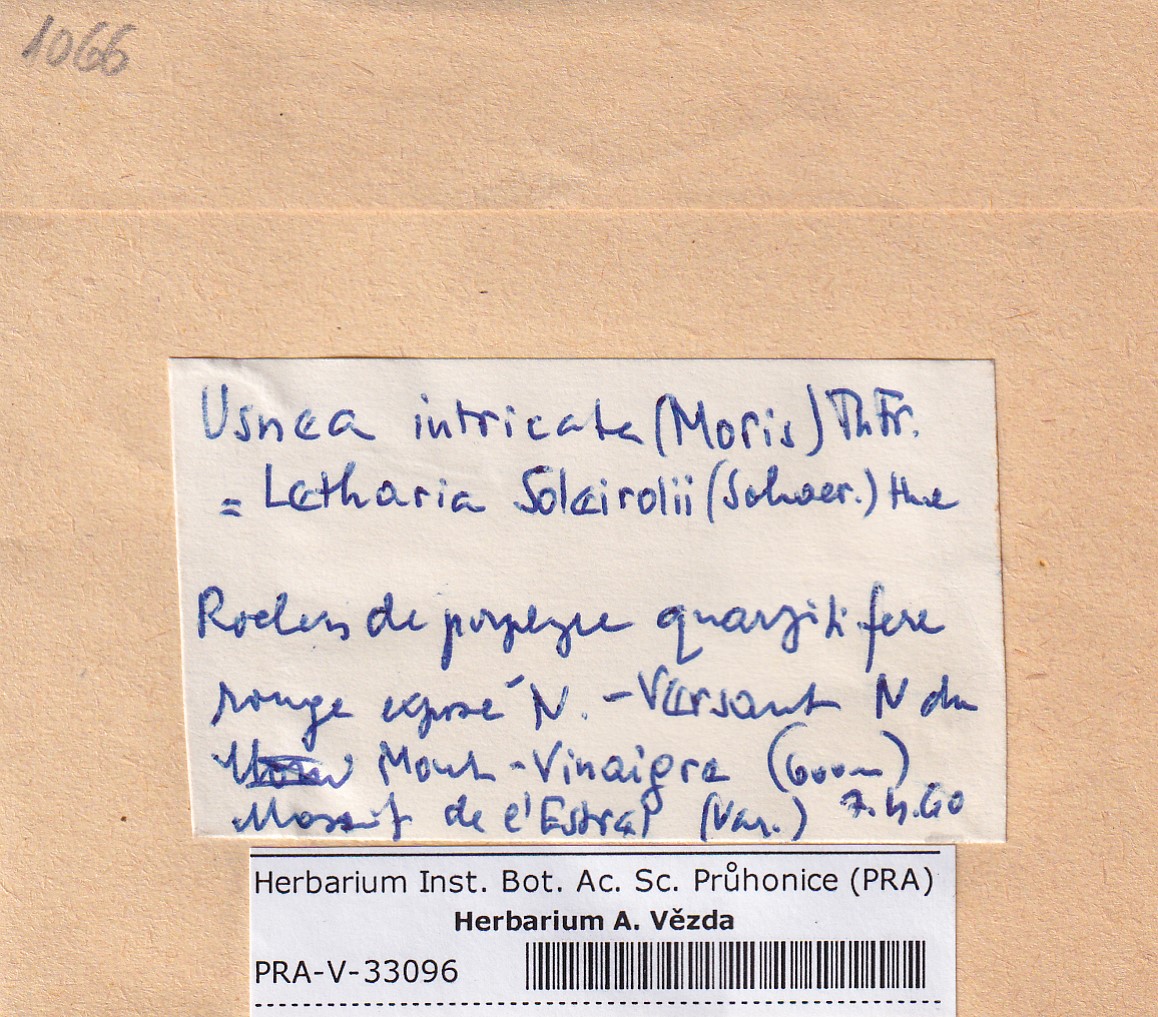 1066
Usnea intricata (Moris) Th Fr.
= Letharia Soleirolii (Schaer.) Hue
Rochers de porphyre quarzitifere
rouge exposé N. - Versant N du
Mont-Vinaigre (600m)
Massif de l'Estral (Var.) 7.4.60
Herbarium Inst. Bot. Ac. Sc. Průhonice (PRA)
Herbarium A. Vězda
PRA-V-33096